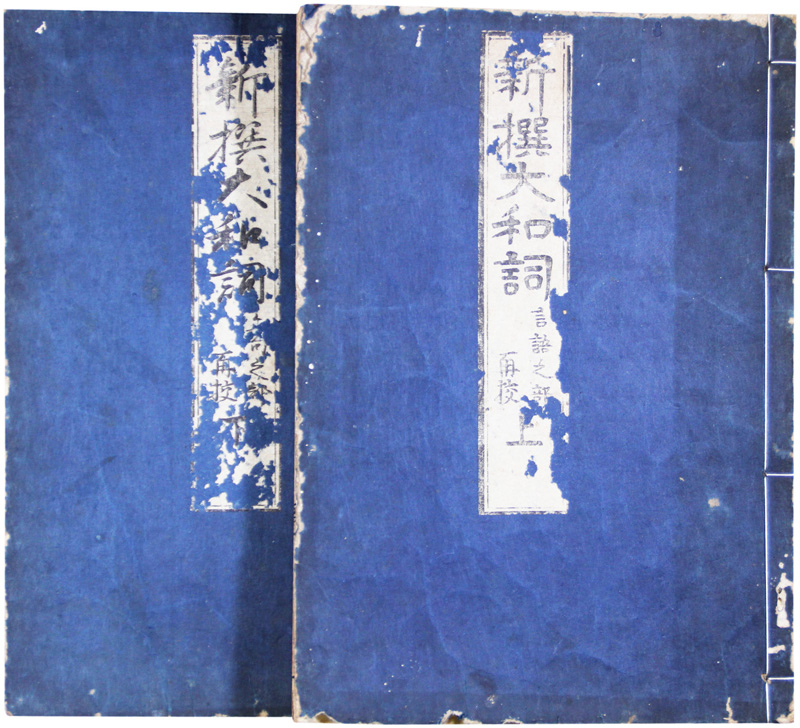 新撰大和詞
言語之部
再校
上
新撰大和詞
之部
再校
下